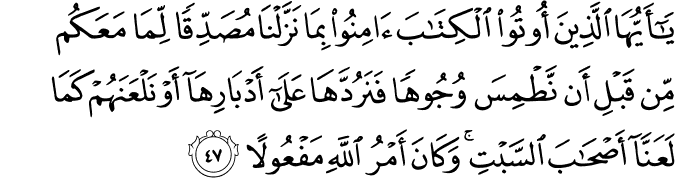 يَٰٓأَيُّهَا ٱلَّذِينَ أُوتُوا۟ ٱلْكِتَٰبَ ءَامِنُوا۟ بِمَا نَزَّلْنَا مُصَدِّقًا لِّمَا مَعَكُم
مِّن قَبْلِ أَن نَّطْمِسَ وُجُوهًا فَنَرُدَّهَا عَلَىٰٓ أَدْبَارِهَآ أَوْ نَلْعَنَهُمْ كَمَا
لَعَنَّآ أَصْحَٰبَ ٱلسَّبْتِ ۚ وَكَانَ أَمْرُ ٱللَّهِ مَفْعُولًا ٤٧